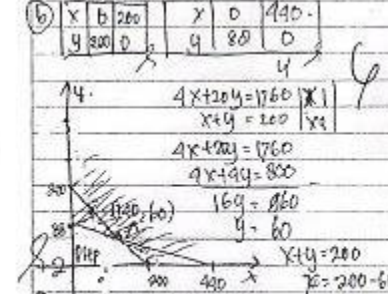 (b) x 0 200 x 0 440
y 200 0 y 88 0
y
4x+20y=1760 | x1
x+y = 200 | x4
4x+20y=1760
4x+4y=800
16y = 960
y = 60
x+y=200
x=200-6
y
200
88
(140,60)
200 440 x